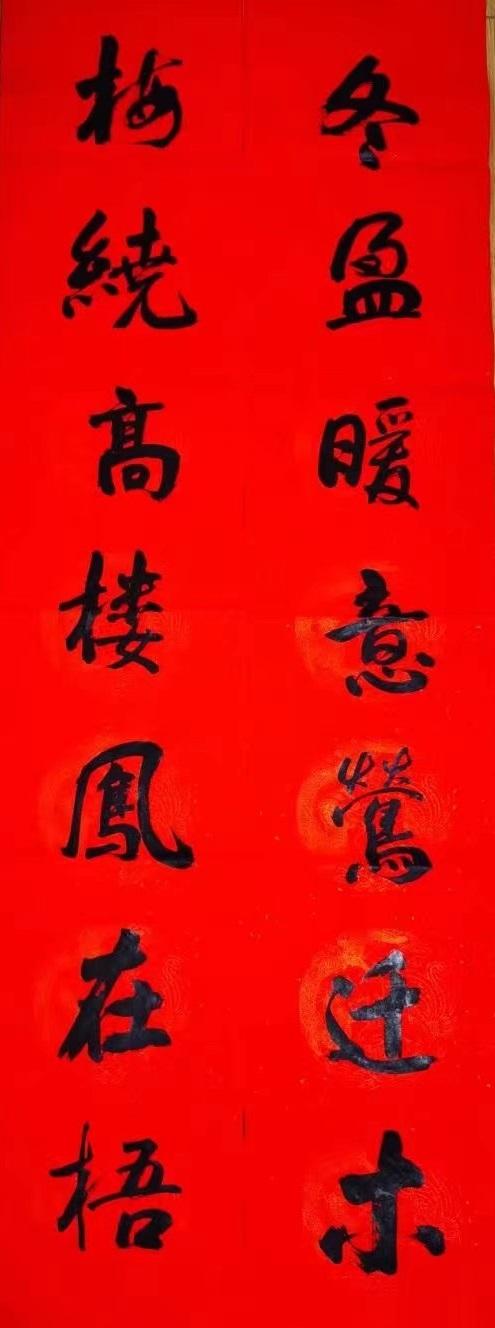 冬盈暖意鶯迁木
梅繞高楼鳳在梧